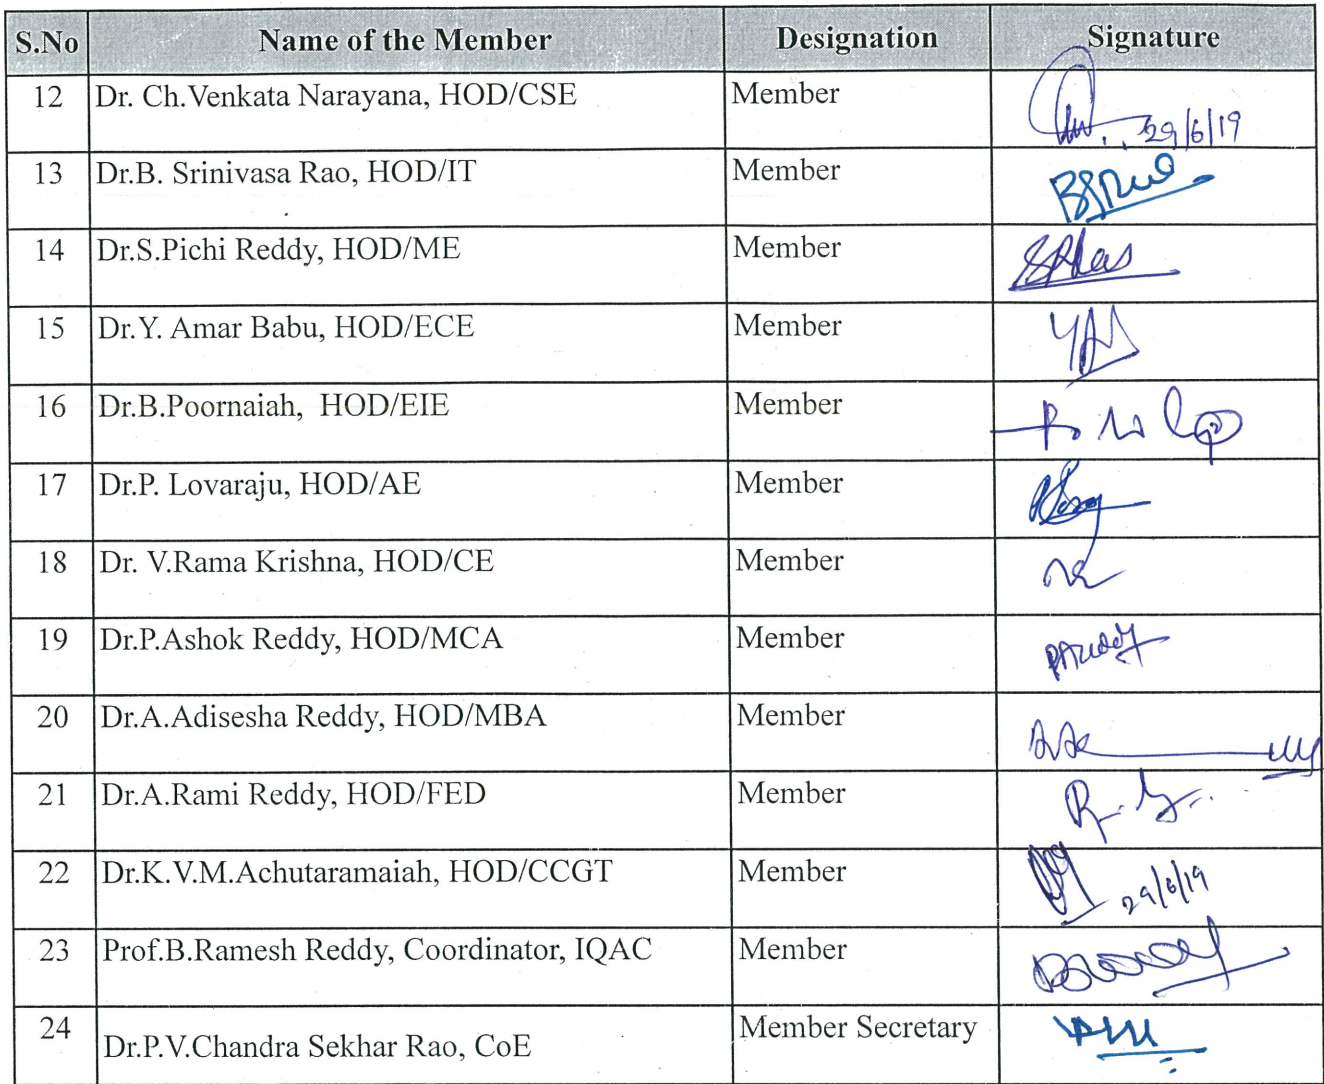 S.No Name of the Member Designation Signature
12 Dr. Ch.Venkata Narayana, HOD/CSE Member 29/6/19
13 Dr.B. Srinivasa Rao, HOD/IT Member
14 Dr.S.Pichi Reddy, HOD/ME Member
15 Dr.Y. Amar Babu, HOD/ECE Member
16 Dr.B.Poornaiah, HOD/EIE Member
17 Dr.P. Lovaraju, HOD/AE Member
18 Dr. V.Rama Krishna, HOD/CE Member
19 Dr.P.Ashok Reddy, HOD/MCA Member
20 Dr.A.Adisesha Reddy, HOD/MBA Member
21 Dr.A.Rami Reddy, HOD/FED Member
22 Dr.K.V.M.Achutaramaiah, HOD/CCGT Member 29/6/19
23 Prof.B.Ramesh Reddy, Coordinator, IQAC Member
24 Dr.P.V.Chandra Sekhar Rao, CoE Member Secretary